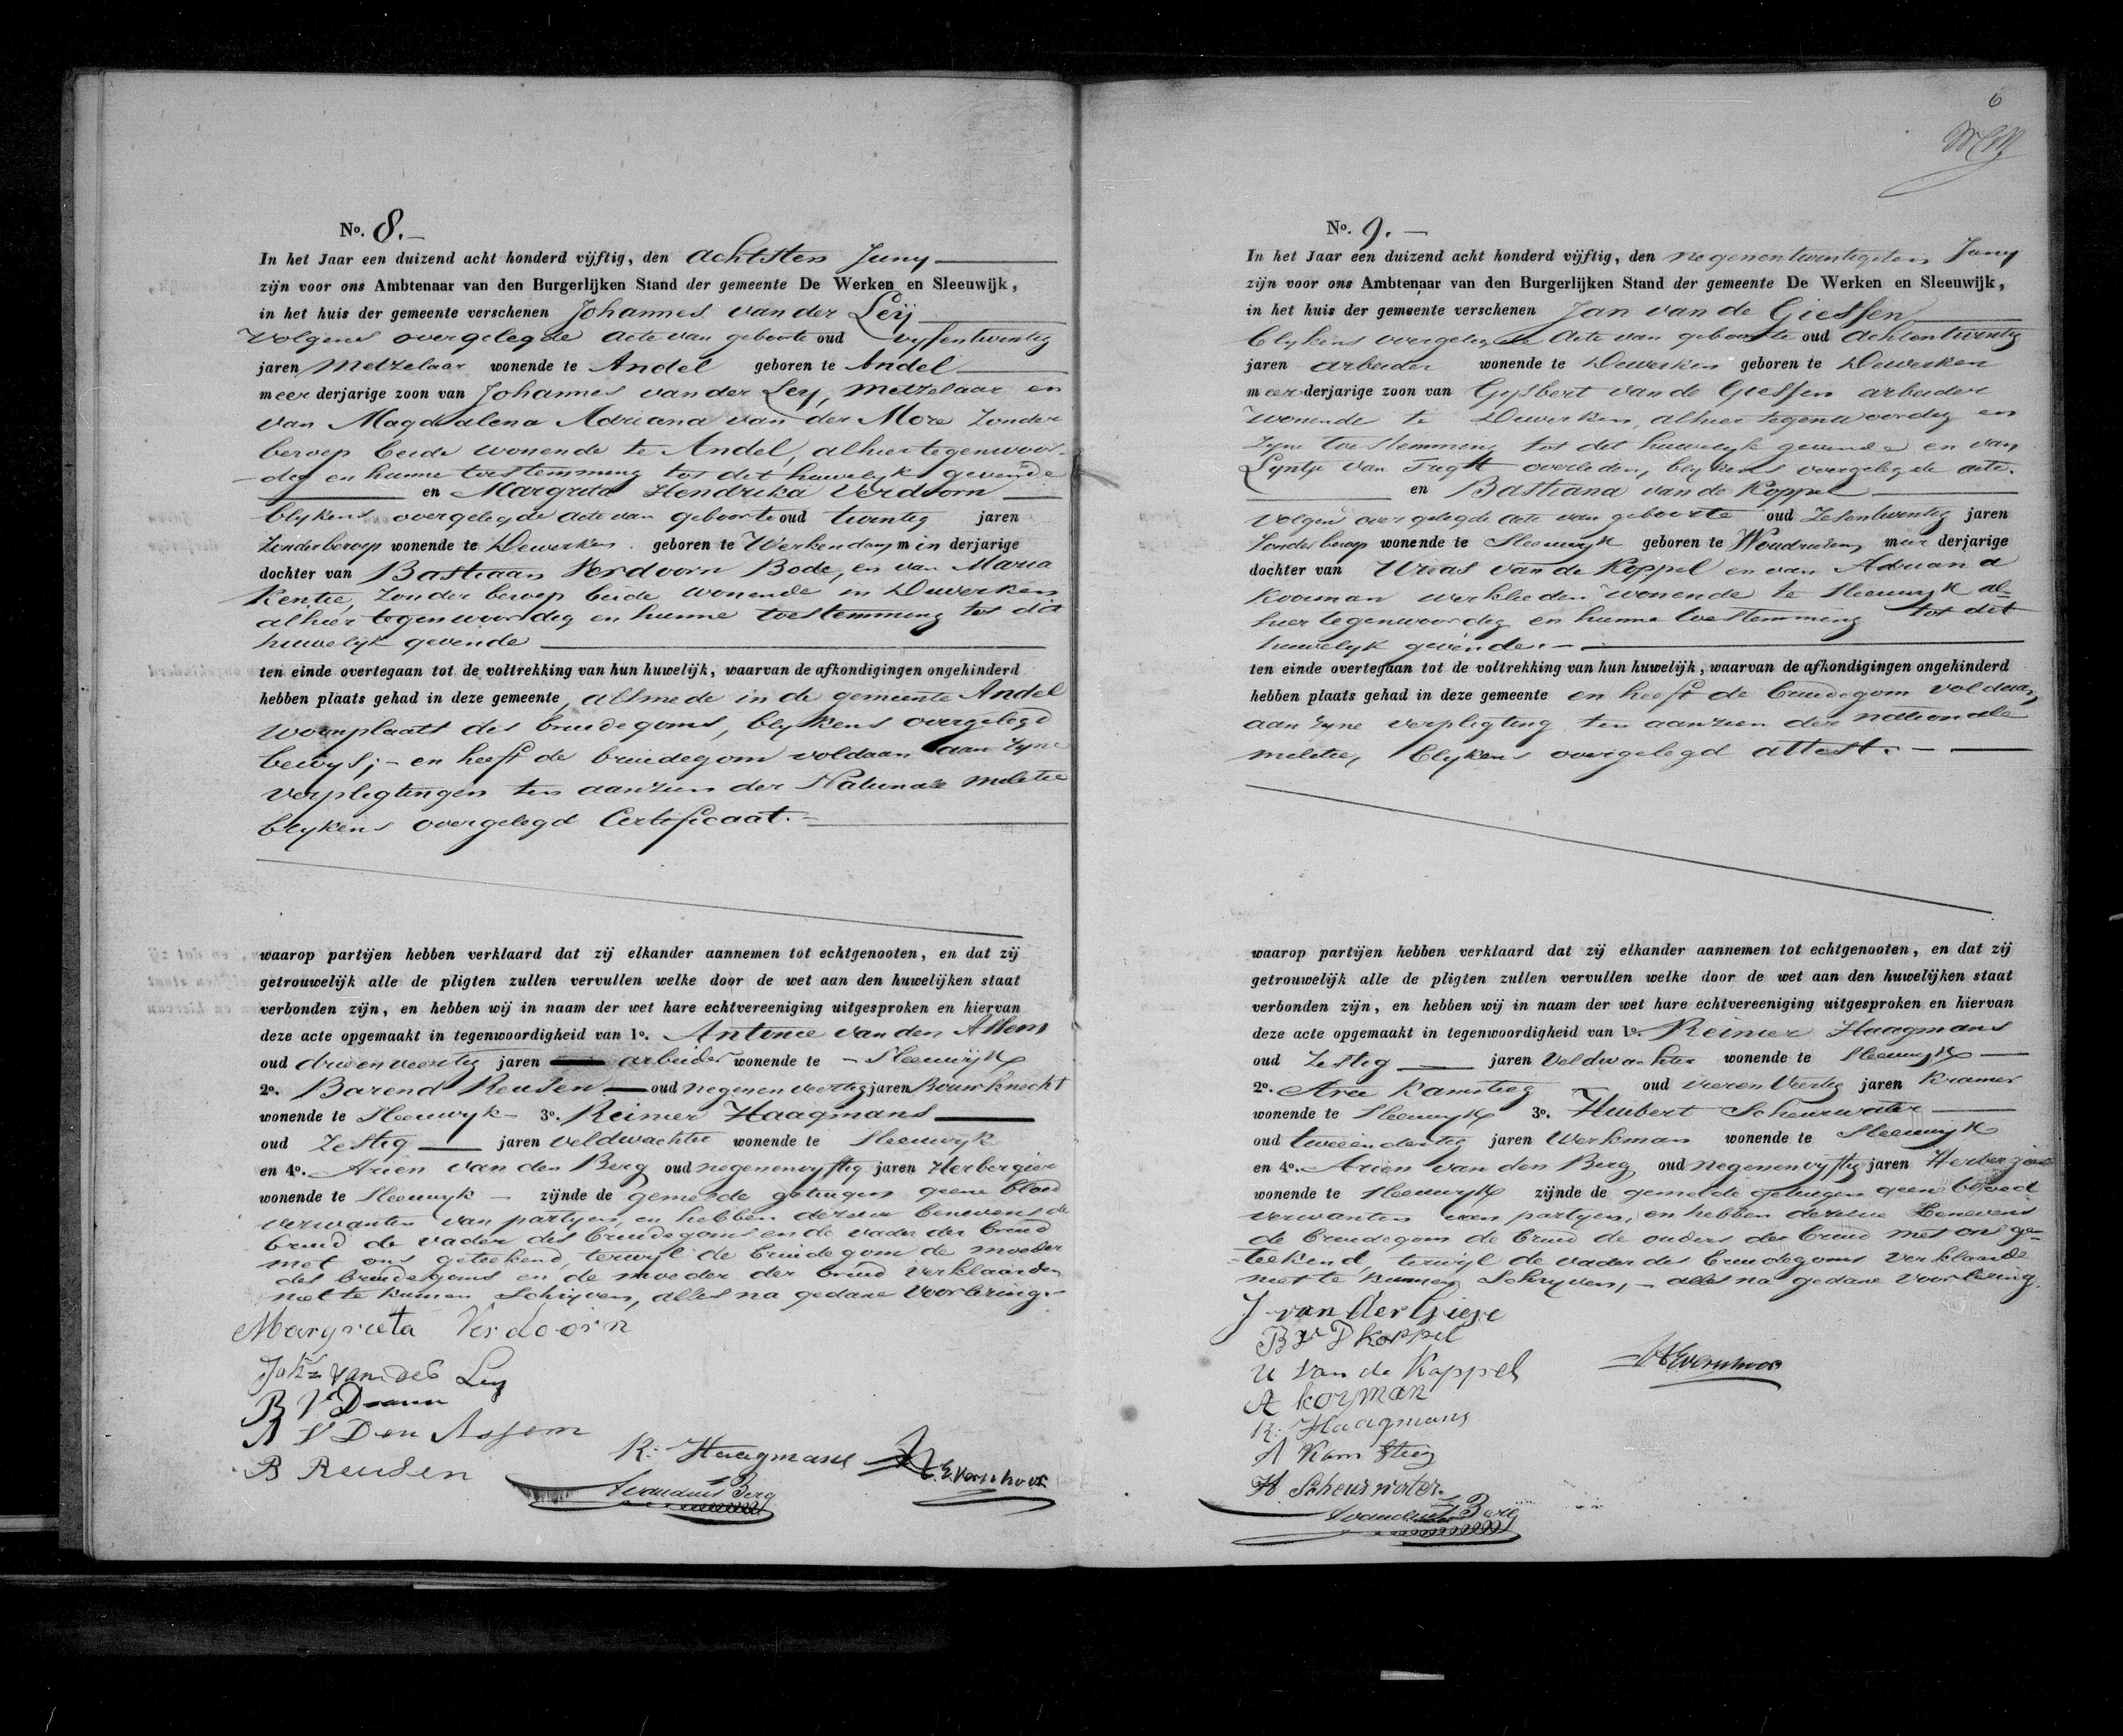 No. 8.
In het Jaar een duizend acht honderd vijftig, den achtsten Juny
zijn voor ons Ambtenaar van den Burgerlijken Stand der gemeente De Werken en Sleeuwijk,
in het huis der gemeente verschenen Johannes van der Leij
volgens overgelegde acte van geboorte oud vyfentwintig
jaren Metzelaar wonende te Andel geboren te Andel
meerderjarige zoon van Johannes van der Ley, Metzelaar en
van Magdalena Adriana van der More Zonder
beroep beide wonende te Andel, alhier tegenwoor-
dig en hunne toestemming tot dit huwelyk gevende
en Margreta Hendrika Verdoorn
blykens overgelegde acte van geboorte oud twintig jaren
Zonder beroep wonende te Dewerken geboren te Werkendam minderjarige
dochter van Bastiaan Verdoorn Bode, en van Maria
Kentie, Zonder beroep beide wonende in Dewerken
alhier tegenwoordig en hunne toestemming tot dit
huwelijk gevende
ten einde overtegaan tot de voltrekking van hun huwelijk, waarvan de afkondigingen ongehinderd
hebben plaats gehad in deze gemeente, alsmede in de gemeente Andel
woonplaats des bruidegoms, blykens overgelegd
bewys; - en heeft de bruidegom voldaan aan zyne
verpligtingen ten aanzien der Nationale melitie
blykens overgelegd Certificaat.
waarop partijen hebben verklaard dat zij elkander aannemen tot echtgenooten, en dat zij
getrouwelijk alle de pligten zullen vervullen welke door de wet aan den huwelijken staat
verbonden zijn, en hebben wij in naam der wet hare echtvereeniging uitgesproken en hiervan
deze acte opgemaakt in tegenwoordigheid van 1o. Antonie van den Assem
oud drieenveertig jaren arbeider wonende te Sleeuwijk
2o. Barend Reusen oud negenenveertig jaren Bouwknecht
wonende te Sleeuwyk 3o. Reimer Haagmans
oud Zestig jaren veldwachter wonende te Sleeuwyk
en 4o. Arien van den Berg oud negenenvyftig jaren Herbergier
wonende te Sleeuwyk zijnde de gemelde getuigen geene bloed
verwanten van partyen, en hebben dezelve benevens de
bruid de vader des bruidegoms en de vader der bruid
met ons geteekend, terwyl de bruidegom de moeder
des bruidegoms en de moeder der bruid verklaarden
niet te kunnen Schrijven, alles na gedane voorlezing.
Margrieta Verdoorn
Johs van der Ley
A V Den Assem
B Reusen
R. Haagmans
A van den Berg
6
No. 9.
In het Jaar een duizend acht honderd vijftig, den negenentwintigsten Juny
zijn voor ons Ambtenaar van den Burgerlijken Stand der gemeente De Werken en Sleeuwijk,
in het huis der gemeente verschenen Jan van de Giessen
blykens overgelegde Acte van geboorte oud achtentwintig
jaren arbeider wonende te Dewerken geboren te Dewerken
meerderjarige zoon van Gysbert van de Giessen arbeider
wonende te Dewerken, alhier tegenwoordig en
zyne toestemming tot dit huwelyk gevende en van
Lyntje van Tregt overleden, blykens overgelegde acte.
en Bastiana van de Koppel
volgens overgelegde acte van geboorte oud Zesentwintig jaren
Zonder beroep wonende te Sleeuwyk geboren te Woudrichem meerderjarige
dochter van Urias van de Koppel en van Adriana
Kooiman werklieden wonende te Sleeuwyk al-
hier tegenwoordig en hunne toestemming tot dit
huwelyk gevende.
ten einde overtegaan tot de voltrekking van hun huwelijk, waarvan de afkondigingen ongehinderd
hebben plaats gehad in deze gemeente en heeft de bruidegom voldaan
aan zyne verpligting ten aanzien der nationale
melitie, blykens overgelegd attest.
waarop partijen hebben verklaard dat zij elkander aannemen tot echtgenooten, en dat zij
getrouwelijk alle de pligten zullen vervullen welke door de wet aan den huwelijken staat
verbonden zijn, en hebben wij in naam der wet hare echtvereeniging uitgesproken en hiervan
deze acte opgemaakt in tegenwoordigheid van 1o. Reimer Haagmans
oud Zestig jaren Veldwachter wonende te Sleeuwyk
2o. Arie Kamsteeg oud vierenveertig jaren Kramer
wonende te Sleeuwyk 3o. Huibert Scheurwater
oud tweeendertig jaren Werkman wonende te Sleeuwyk
en 4o. Arien van den Berg oud negenenvyftig jaren Herbergier
wonende te Sleeuwyk zijnde de gemelde getuigen geene bloed
verwanten van partyen, en hebben dezelve benevens
de bruidegom de bruid de ouders der bruid met ons ge-
teekend, terwyl de vader des bruidegoms verklaarde
niet te kunnen Schryven, - alles na gedane voorlezing.
J van der Giese
B V D Koppel
U Van de Koppel
A kooyman
R. Haagmans
A Kamsteeg
H Scheurwater.
A van den Berg